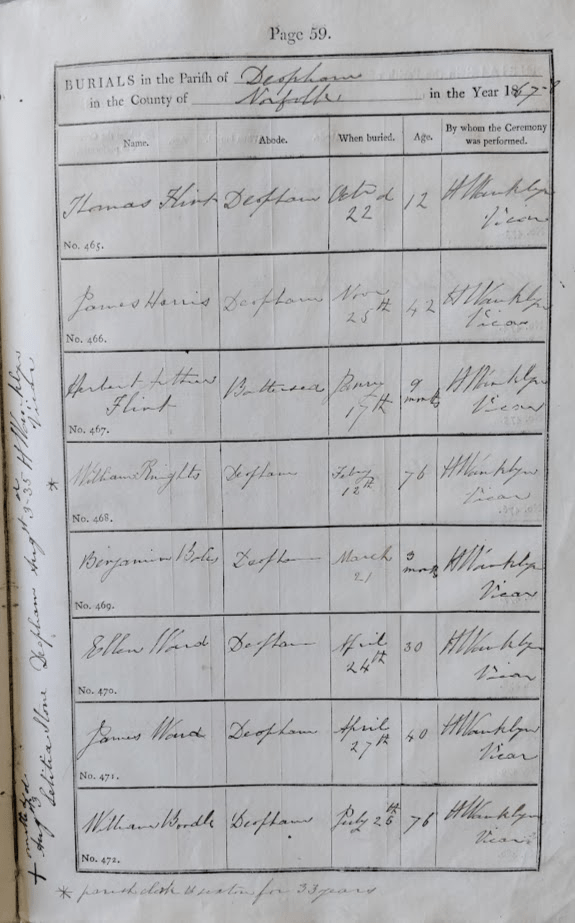 Page 59.
BURIALS in the Parish of Deopham
in the County of Norfolk in the Year 1867-8
Name. Abode. When buried. Age. By whom the Ceremony was performed.
Thomas Flint Deopham Octr 22d 12 H Wanklyn Vicar
No. 465.
James Harris Deopham Novr 25th 42 H Wanklyn Vicar
No. 466.
Herbert Arthur Flint Battersea Janry 17th 9 months H Wanklyn Vicar
No. 467.
William Knights Deopham Feby 12th 76 H Wanklyn Vicar
No. 468.
*
Benjamin Deopham March 21 3 months H Wanklyn Vicar
No. 469.
Ellen Ward Deopham April 24th 30 H Wanklyn Vicar
No. 470.
James Ward Deopham April 27th 40 H Wanklyn Vicar
No. 471.
William Deopham July 26th 76 H Wanklyn Vicar
No. 472.
+ omitted
Augst 3 Letitia Stone Deopham Augst 3d 35 H Wanklyn Vicar
* parish clerk & sexton for 33 years